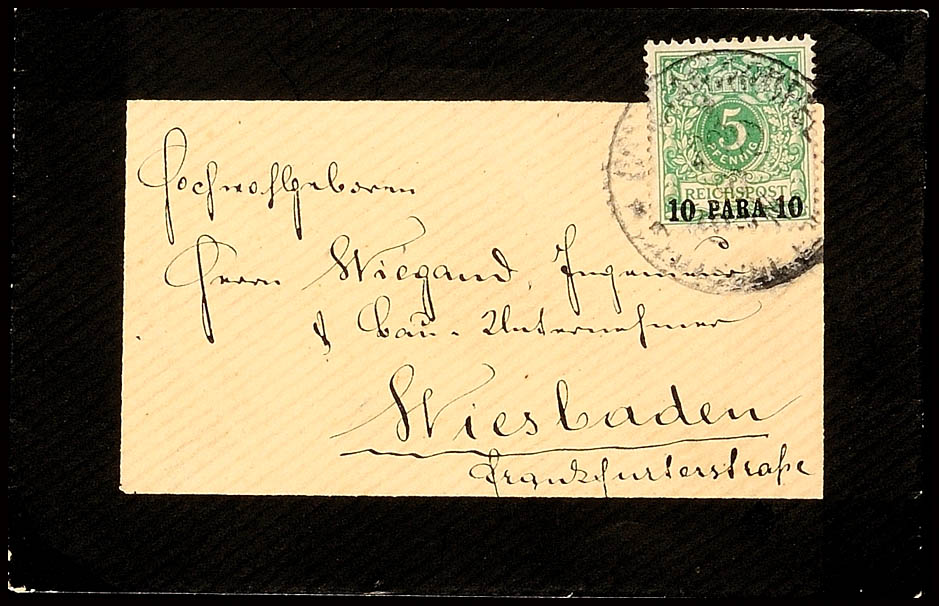 5
PFENNIG
REICHSPOST
10 PARA 10
Hochwohlgeboren
Herrn Wiegand, Ingenieur
& Bau-Unternehmer
Wiesbaden
Frankfurterstraße